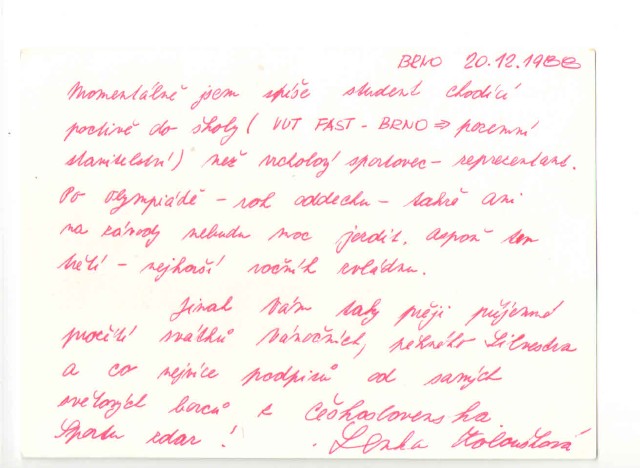 BRNO 20.12.1988
Momentálně jsem spíše student chodící
poctivě do školy ( VUT FAST - BRNO ⇒ pozemní
stavitelství ) než vrcholový sportovec - reprezentant.
Po olympiádě - rok oddechu - takže ani
na závody nebudu moc jezdit. Aspoň ten
třetí - nejhorší ročník zvládnu.
Jinak Vám taky přeji příjemné
prožití svátků vánočních, pěkného Silvestra
a co nejvíce podpisů od samých
světových borců z Československa
Sportu zdar ! Lenka Koloušková